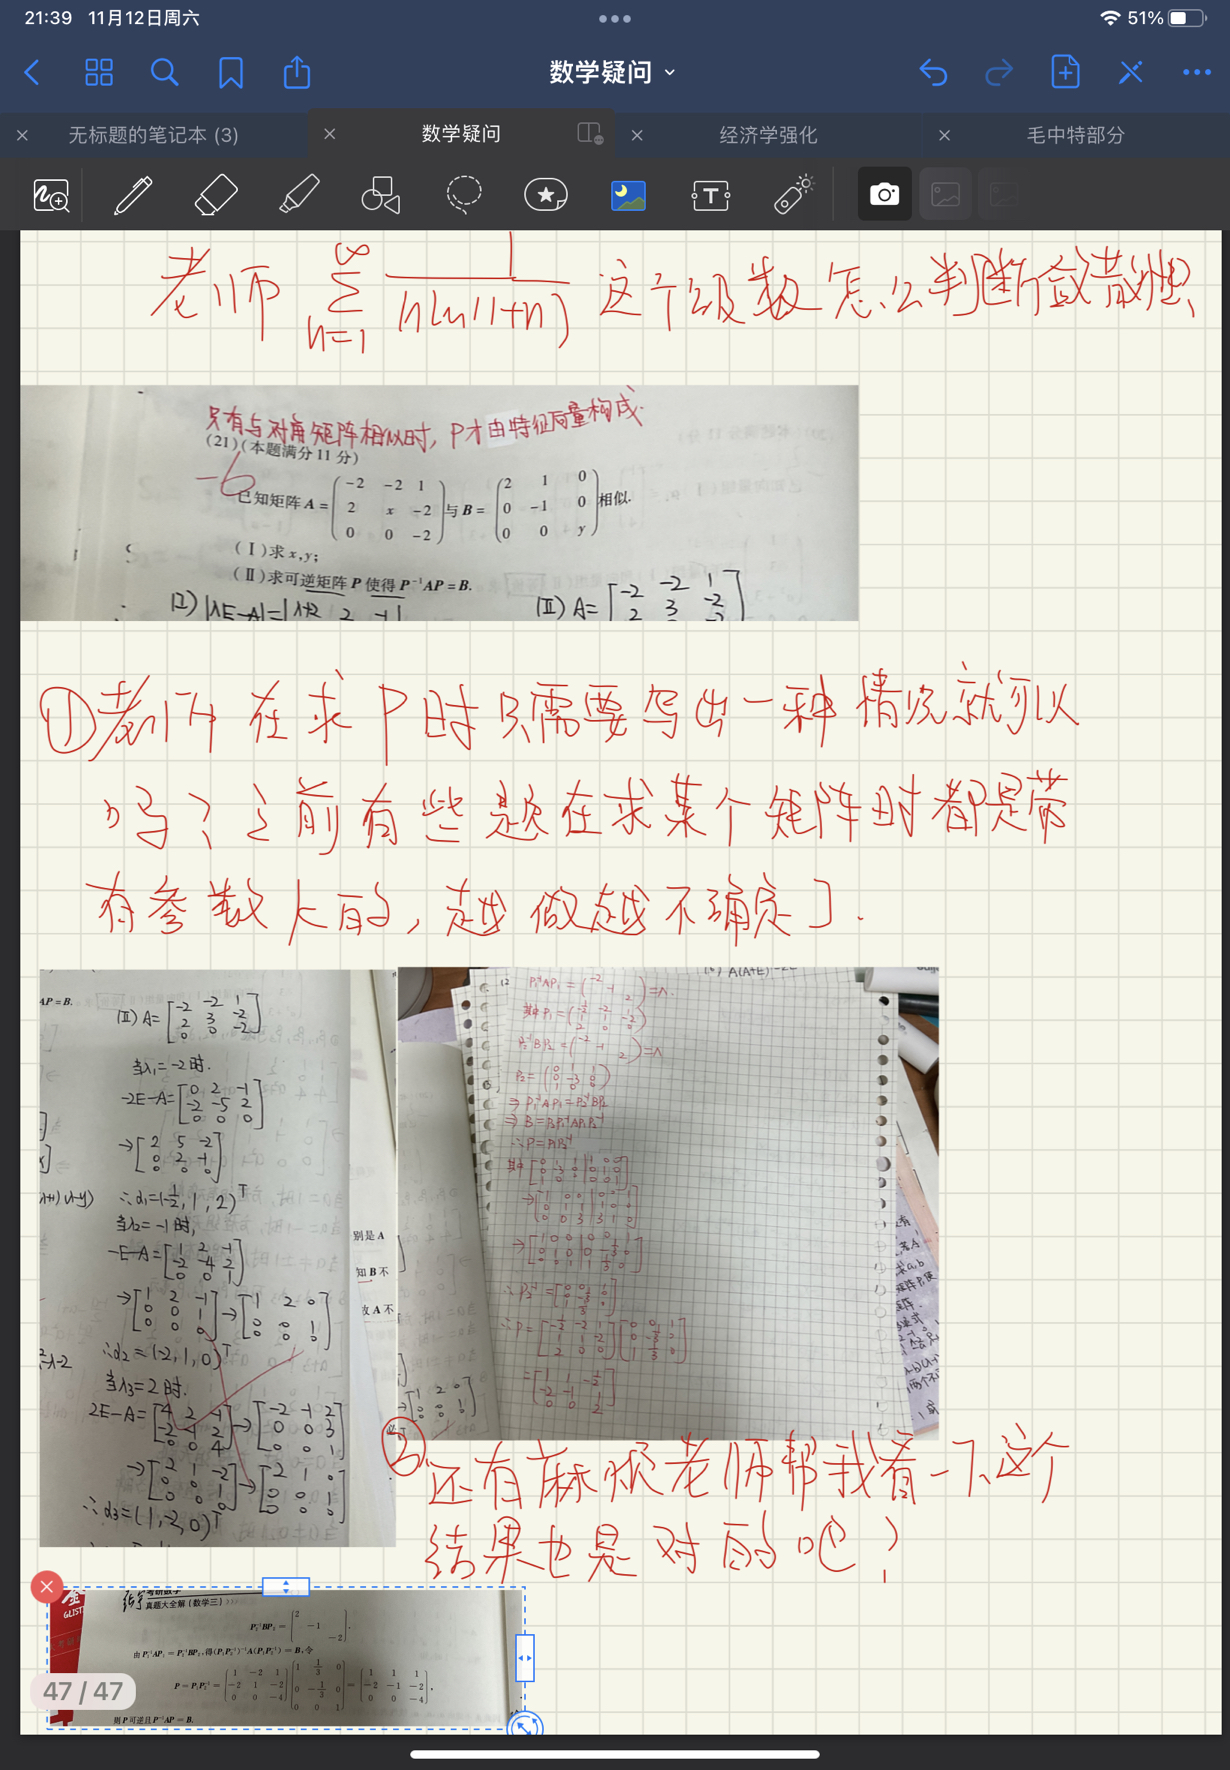 21:39 11月12日周六
51%
数学疑问
无标题的笔记本 (3)
数学疑问
经济学强化
毛中特部分
老师 ∞ Σ n=1 1/(n ln(1+n)) 这个级数怎么判断敛散性
只有与对角矩阵相似时, P才由特征向量构成.
(21)(本题满分11分)
-6
已知矩阵 A = (-2 -2 1; 2 x -2; 0 0 -2) 与 B = (2 1 0; 0 -1 0; 0 0 y) 相似.
(Ⅰ)求 x,y;
(Ⅱ)求可逆矩阵 P 使得 P⁻¹AP = B.
|λE-A|=|λ+2 2 -1|
(Ⅱ) A= [-2 -2 1; 2 3 -2
①老师 在求P时只需要写出一种情况就可以
吗?之前有些题在求某个矩阵时都是带
有参数k的,越做越不确定了.
AP = B.
(Ⅱ) A= [-2 -2 1; 2 3 -2; 0 0 -2]
当λ₁=-2时.
-2E-A= [0 2 -1; -2 -5 2; 0 0 0]
→ [2 5 -2; 0 2 -1; 0 0 0]
∴α₁=(-½, 1, 2)ᵀ
当λ₂=-1时,
-E-A= [1 2 -1; -2 -4 2; 0 0 1]
→ [1 2 -1; 0 0 1; 0 0 0] → [1 2 0; 0 0 1; 0 0 0]
∴α₂=(-2,1,0)ᵀ
当λ₃=2时.
2E-A= [4 2 -1; -2 -1 2; 0 0 4] → [-2 -1 2; 0 0 3; 0 0 1]
→ [2 1 -2; 0 0 1; 0 0 0] → [2 1 0; 0 0 1; 0 0 0]
∴α₃=(1,-2,0)ᵀ
别是 A
知 B 不
故 A 不
A(A+E)
P₁⁻¹AP₁ = (-2 -1 2) =Λ.
其中P₁ = (-½ -2 1; 1 1 -2; 2 0 0)
P₂⁻¹BP₂ = (-2 -1 2) =Λ
P₂ = (0 1 1; 0 -3 0; 1 0 0)
⇒ P₁⁻¹AP₁ = P₂⁻¹BP₂
⇒ B = P₂P₁⁻¹AP₁P₂⁻¹
∴P=P₁P₂⁻¹
②还有麻烦老师帮我看一下这个
结果也是对的吧?
考研数学
真题大全解 (数学三) >>>
P₂⁻¹BP₂ = [2 -1 -2].
由 P₁⁻¹AP₁ = P₂⁻¹BP₂,得(P₁P₂⁻¹)⁻¹A(P₁P₂⁻¹) = B,令
P = P₁P₂⁻¹ = [1 -2 1; -2 1 -2; 0 0 -4] [1 1/3 0; 0 -1/3 0; 0 0 1] = [1 1 1; -2 -1 -2; 0 0 -4],
则 P 可逆且 P⁻¹AP = B.
47 / 47